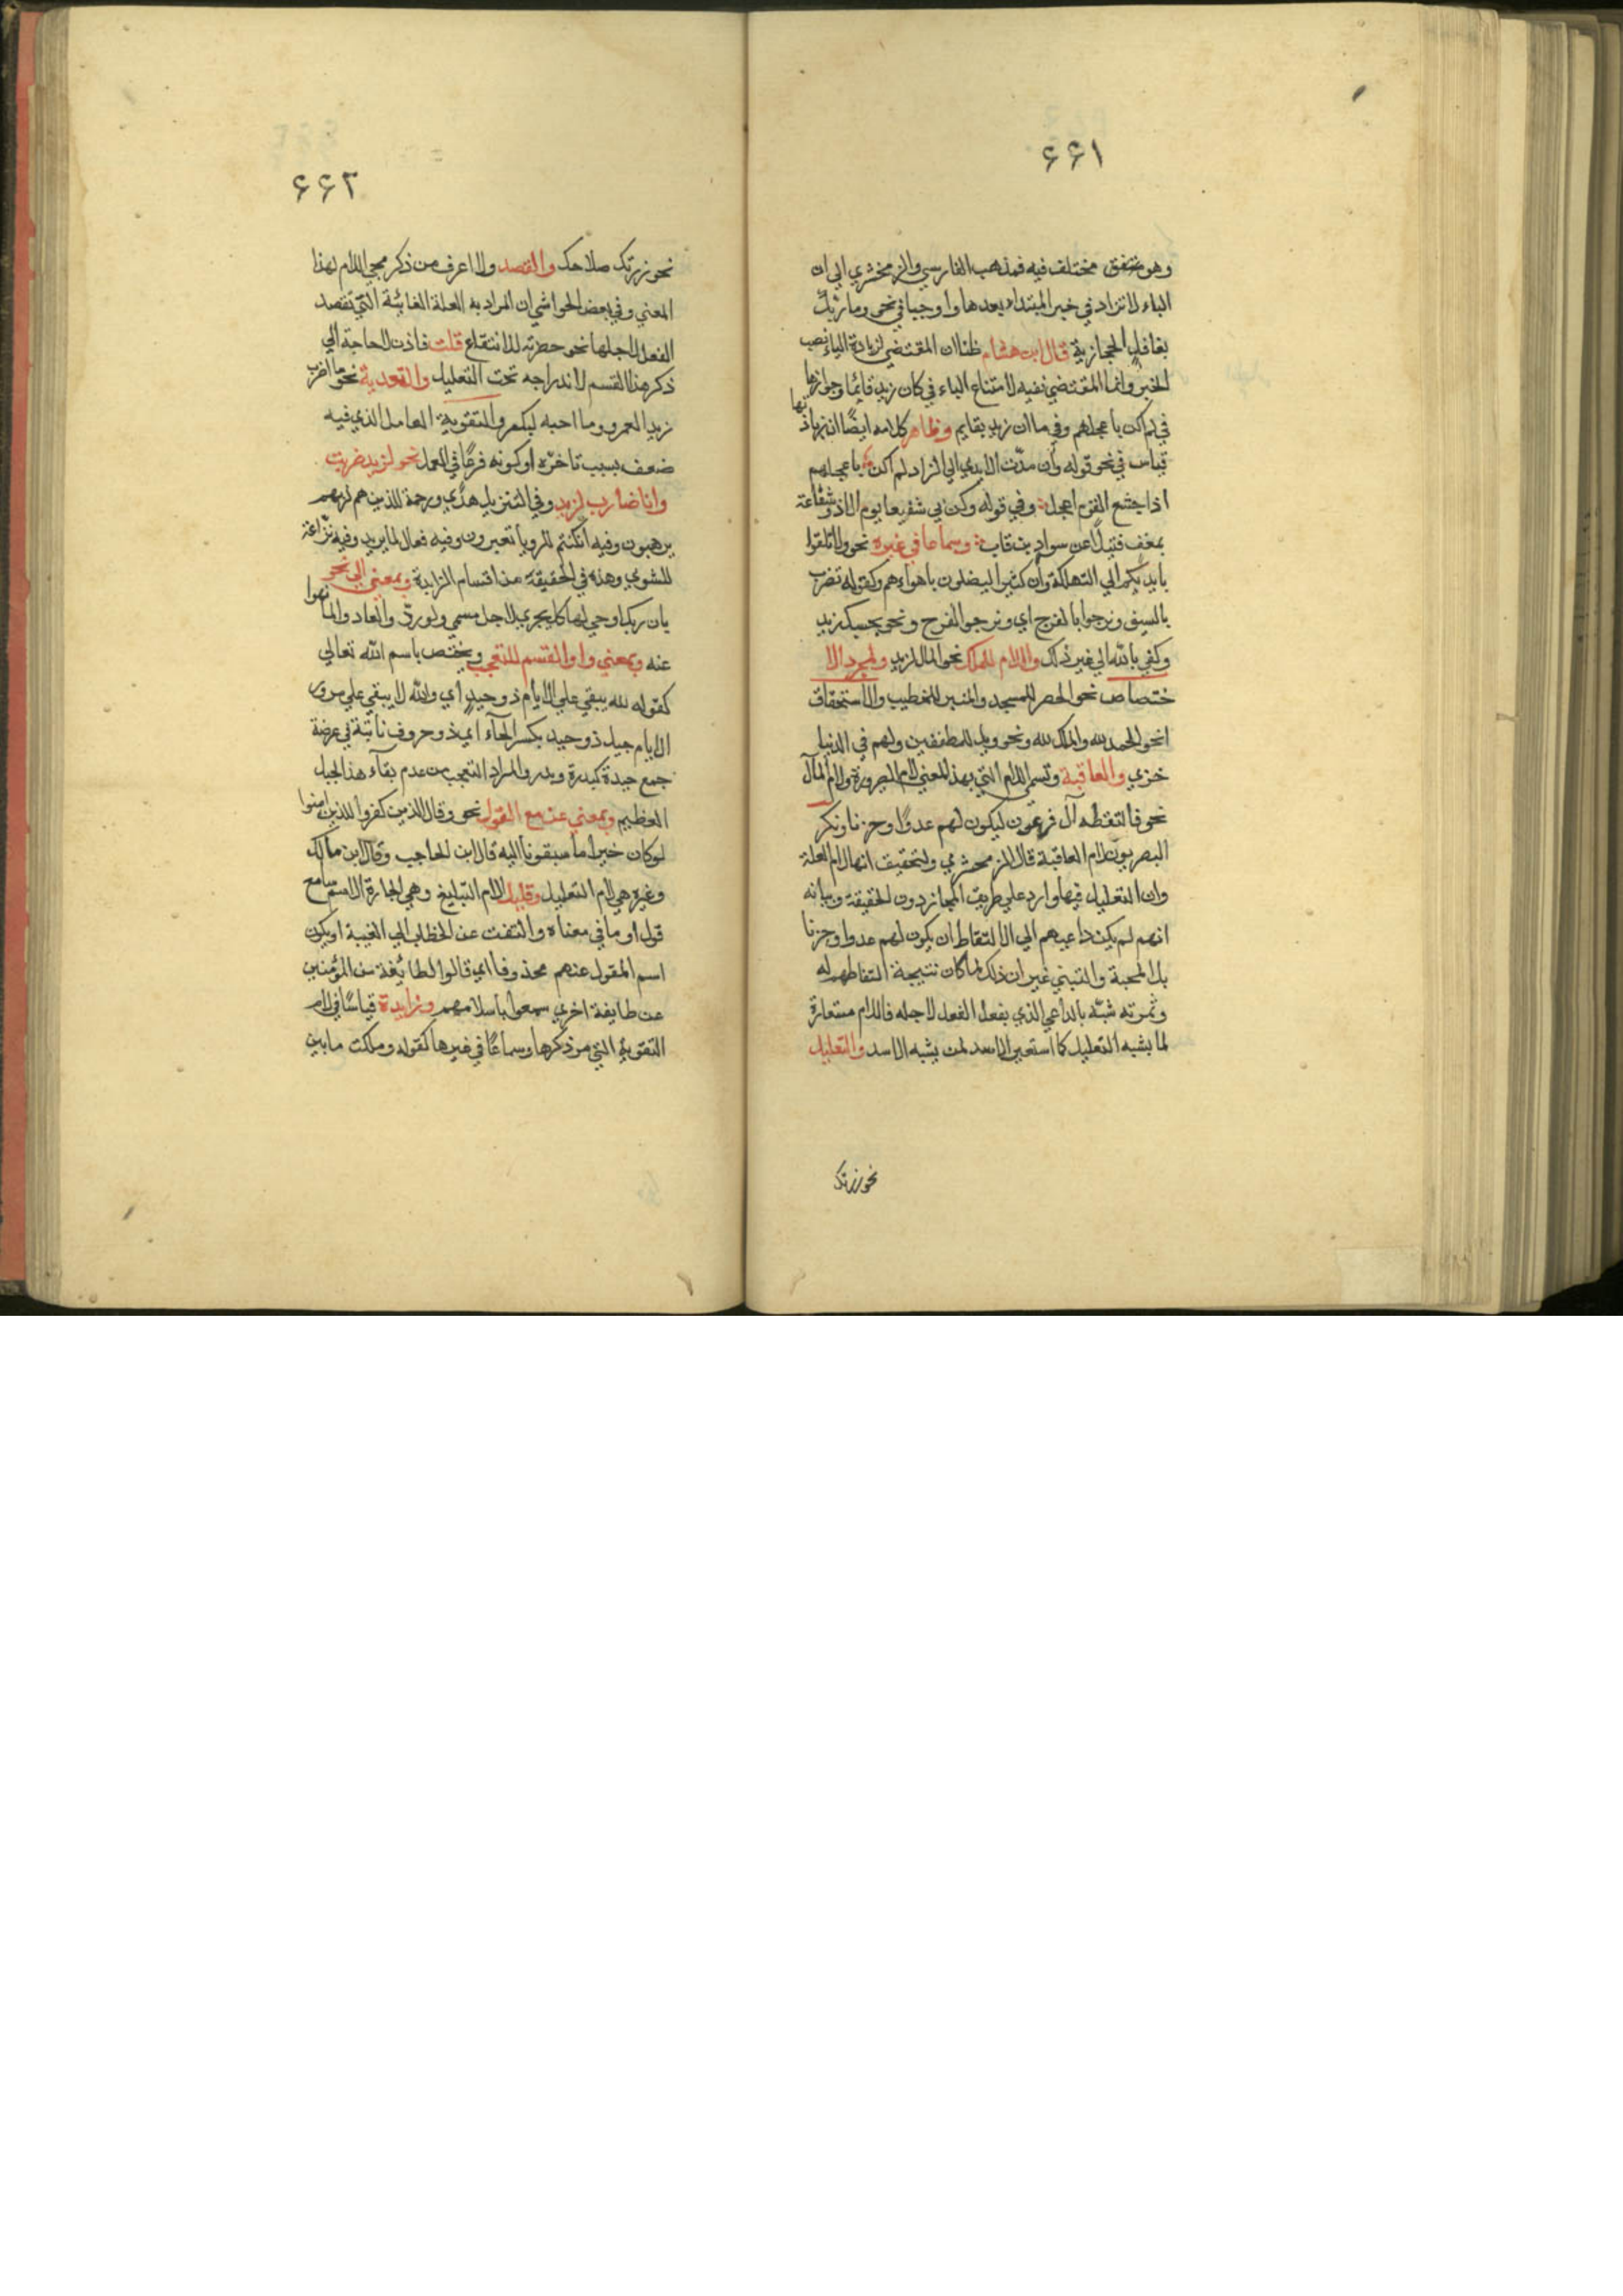 ٦٦١
وهو متفق مختلف فيه فمذهب الفارسي والزمخشري الي ان
الباء لا تزاد في خبر المبتداء بعدها واوجبا في نحو وما ربك
بغافل الحجازية قال ابن هشام ظنا ان المقتضي لزيادة الباء نصب
الخبر وانما المقتضي نفيه لامتناع الباء في كان زيد قائما وجوازها
في لم اكن باعجلهم وفي ما ان زيد بقايم وظاهر كلامه ايضًا ان زيادتها
قياس في نحو قوله وان مدّت الايدي الي الزاد لم اكن باعجلهم
اذا جشع القوم اعجل وفي قوله وكن لي شفيعا يوم لا ذو شفاعة
بمغن فتيلًا عن سواد بن قارب وسماعا في غيره نحو ولا تلقوا
بايديكم الي التهلكة وان كثيرا ليضلون باهوائهم وكقوله نضرب
بالسيف ونرجوا بالفرج اي ونرجو الفرح ونحو بحسبك زيد
وكفي بالله الي غير ذلك واللام للملك نحو المال لزيد ولمجرد الا
ختصاص نحو الحصر للمسجد والمنبر للخطيب والاستحقاق
نحو الحمد لله والملك لله ونحو ويل للمطففين ولهم في الدنيا
خزي والعاقبة وتسمي اللام التي بهذا المعني لام الصيرورة ولام المآل
نحو فالتقطه آل فرعون ليكون لهم عدوًا وحزنا ونكر
البصريون لام العاقبة قال الزمخشري والتحقيق انها لام العلة
وان التعليل فيها وارد علي طريق المجاز دون الحقيقة وبيانه
انهم لم يكن داعيهم الي الالتقاط ان يكون لهم عدوا وحزنا
بل المحبة والتبني غير ان ذلك لما كان نتيجة التقاطهم له
وثمرته شبّه بالداعي الذي يفعل الفعل لاجله فاللام مستعارة
لما يشبه التعليل كما استعير الاسد لمن يشبه الاسد والتعليل
نحو زرتك
٦٦٢
نحو زرتك صلاحك والقصد ولا اعرف من ذكر مجي اللام لهذا
المعني وفي بعض الحواشي ان المراد به العلة الغائية التي تقصد
الفعل لاجلها نحو حضرته للانتفاع قلت فاذن لا حاجة الي
ذكر هذا القسم لاندراجه تحت التعليل والتعدية نحو ما اضرب
زيد لعمرو وما احبه لبكر والتقوية العامل الذي فيه
ضعف بسبب تاخره او كونه فرعًا في العمل نحو لزيد ضربت
وانا ضارب لزيد وفي التنزيل هدًي ورحمة للذين هم لربهم
يرهبون وفيه ان كنتم للرويا تعبرون وفيه فعال لما يريد وفيه نزّاعة
للشوي وهذه في الحقيقة من اقسام الزايدة وبمعني الي نحو
بان ربك اوحي لها كل يجري لاجل مسمي ولو ردّوا لعادوا لما نهوا
عنه وبمعني واو القسم للتعجب ويختص باسم الله تعالي
كقوله لله يبقي علي الايام ذو حيد اي والله لا يبقي علي مرور
الايام جبل ذو حيد بكسر الحآء اي ذو حروف نابتة في عرضة
جمع حيدة كبدرة وبدر والمراد التعجب من عدم بقآء هذا الجبل
العظيم وبمعني عن مع القول نحو وقال الذين كفروا للذين امنوا
لو كان خيرا ما سبقونا اليه قال ابن الحاجب وقال ابن مالك
وغيره هي لام التعليل وقليل لام التبليغ وهي الجارة لاسم سامع
قول او ما في معناه والتفت عن الخطاب الي الغيبة او يكون
اسم المقول عنهم محذوفا اي قالوا لطايفة من المؤمنين
عن طايفة اخري سمعوا باسلامهم وزايدة قياسًا في لام
التقوية التي مر ذكرها وسماعًا في غيرها كقوله وملكت ما بين